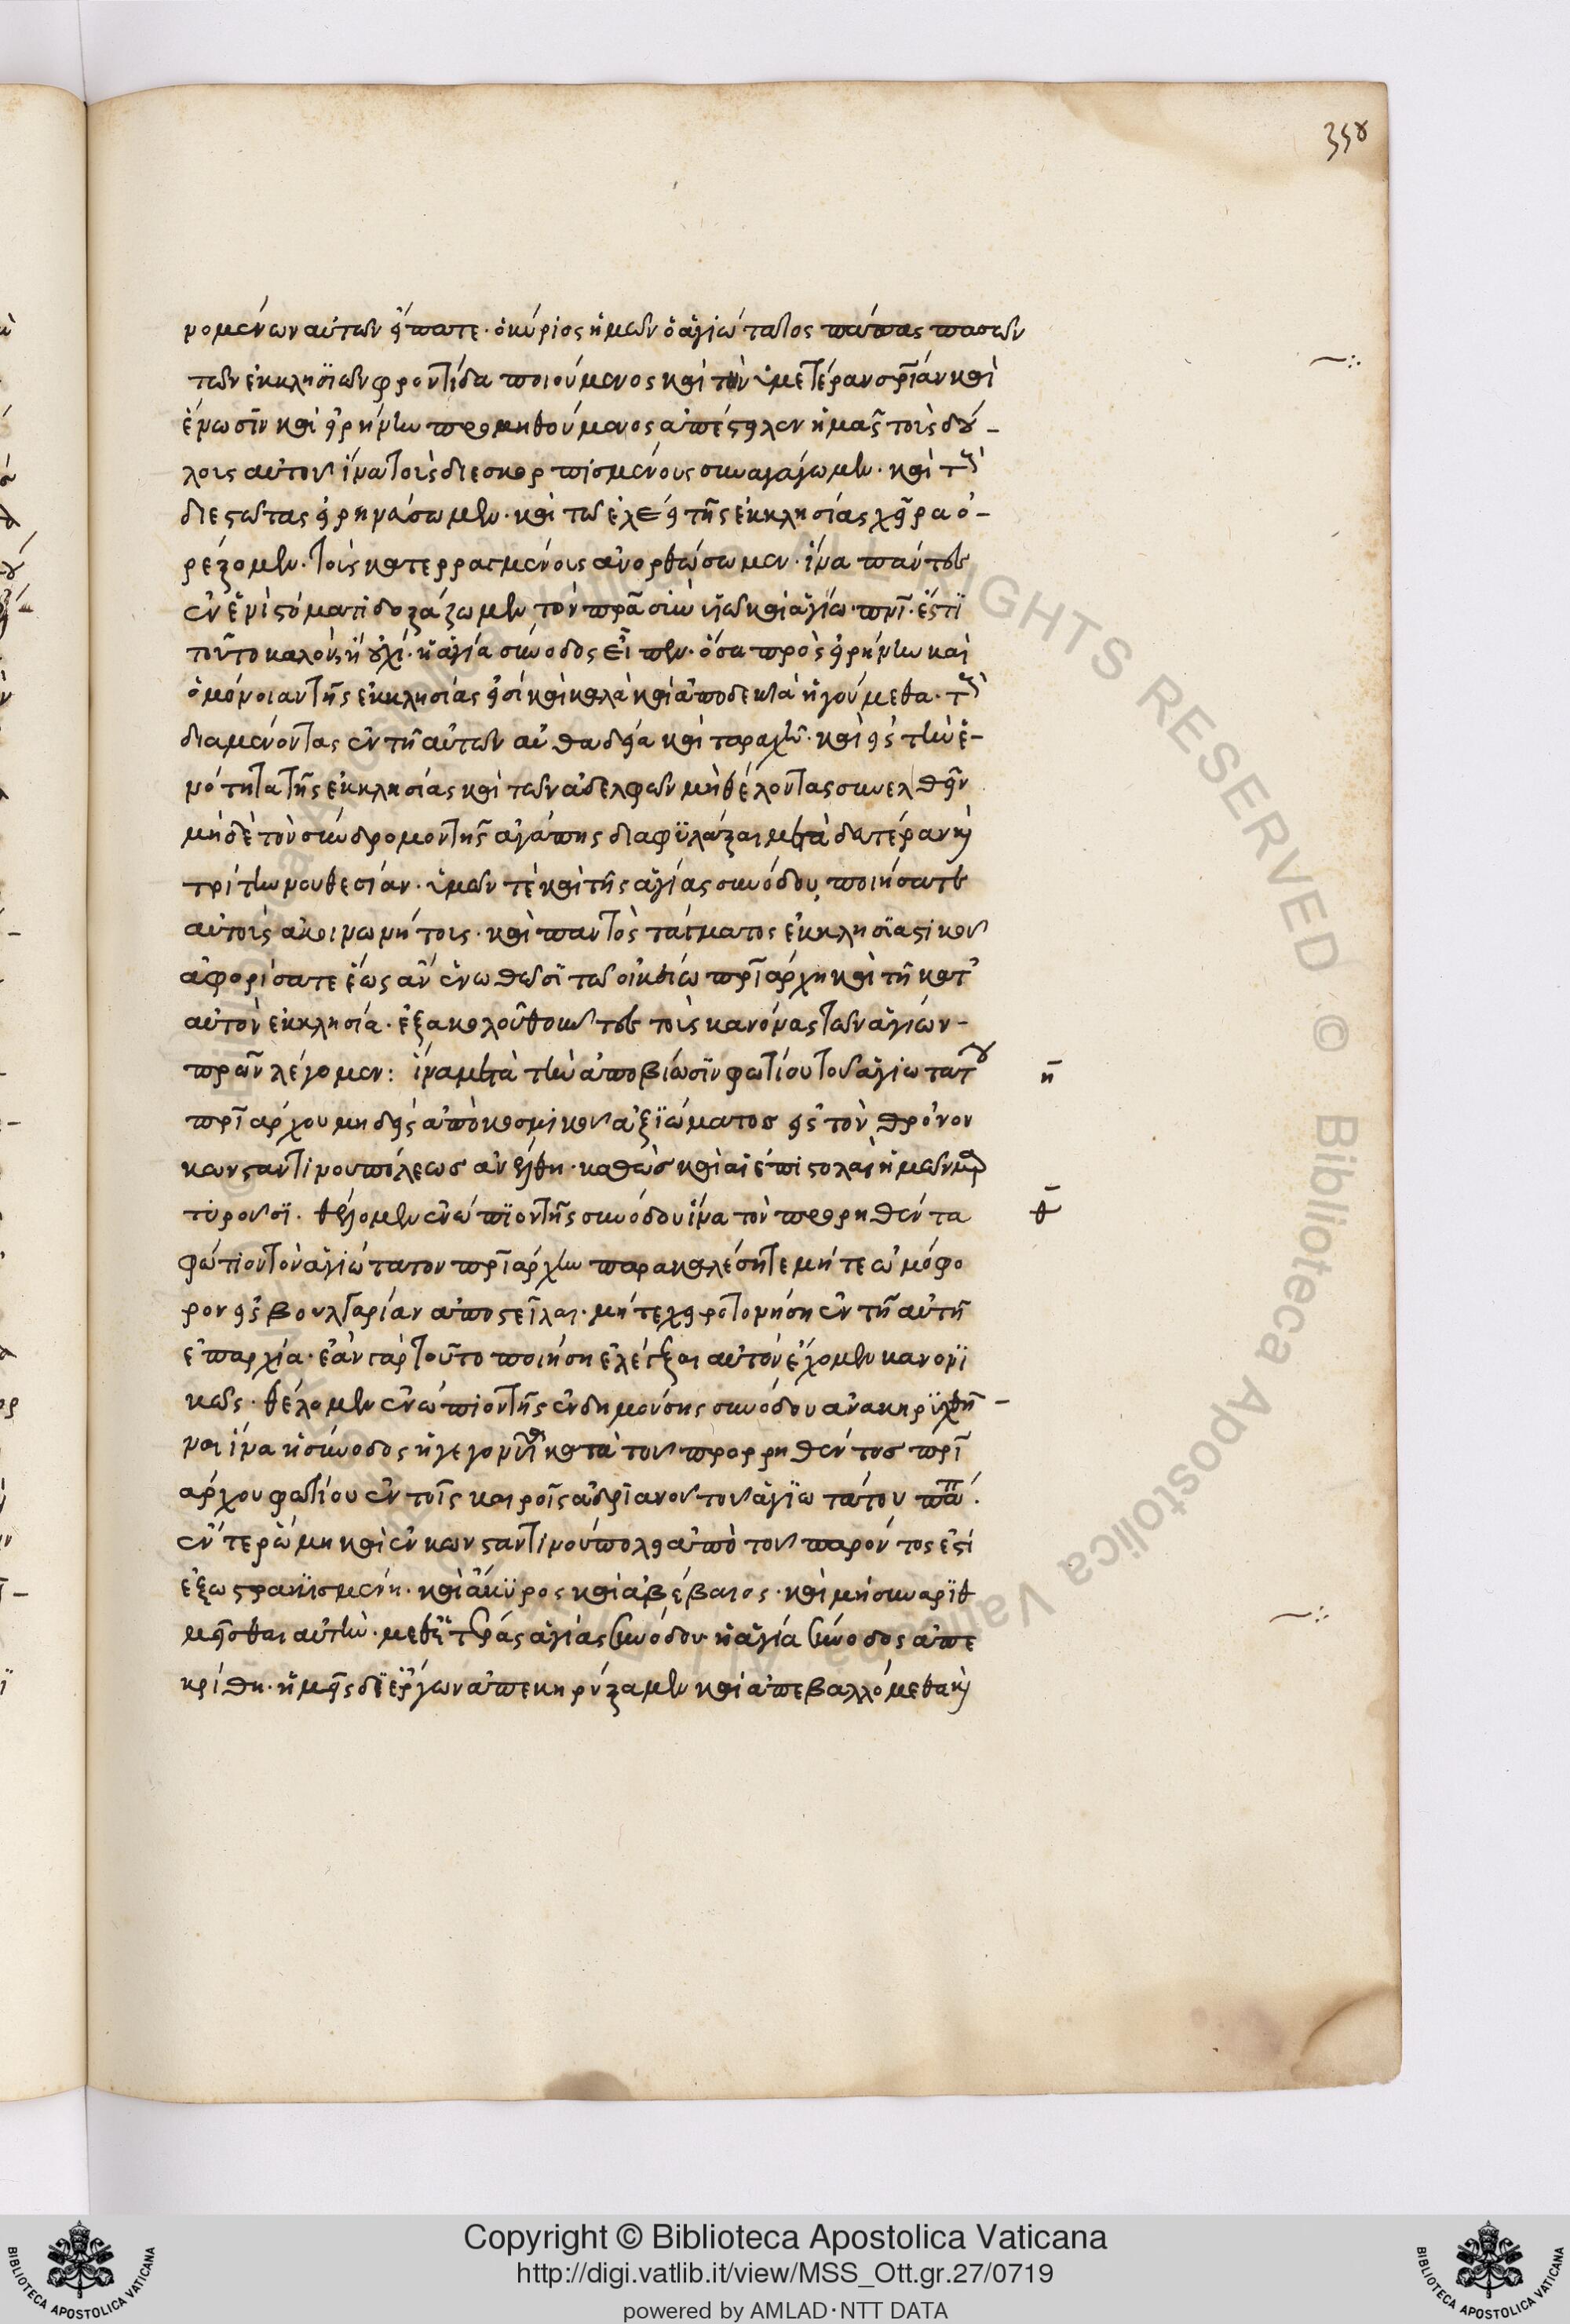 358
νομένων αὐτῶν εἴπατε· ὁ κύριος ἡμῶν ὁ ἁγιώτατος πάπας πασῶν
τῶν ἐκκλησιῶν φροντίδα ποιούμενος καὶ τὴν ὑμετέραν σρίαν καὶ
ἕνωσιν καὶ εἰρήνην προμηθούμενος ἀπέστειλεν ἡμᾶς τοὺς δού-
λους αὐτοῦ ἵνα τοὺς διεσκορπισμένους συναγάγωμεν· καὶ τοὺς
διεστῶτας εἰρηνάσωμεν· καὶ τῶ ἐλέει τῆς ἐκκλησίας χεῖρα ὀ-
ρέξομεν· τοὺς κατερραγμένους ἀνορθώσωμεν· ἵνα πάντες
ἐν ἑνὶ στόματι δοξάζωμεν τὸν πρα σὺν υἱῶ καὶ ἁγίω πνι· ἔστι
τοῦτο καλὸν ἢ οὐχί· ἡ ἁγία σύνοδος εἶπεν· ὅσα πρὸς εἰρήνην καὶ
ὁμόνοιαν τῆς ἐκκλησίας εἰσὶ καὶ καλὰ καὶ ἀποδεκτὰ ἡγούμεθα· τοὺς
διαμένοντας ἐν τῆ αὐτῶν αὐθαδεία καὶ ταραχῆ· καὶ εἰς τὴν ἑ-
νότητα τῆς ἐκκλησίας καὶ τῶν ἀδελφῶν μὴ θέλοντας συνελθεῖν
μηδὲ τὸν σύνδρομον τῆς ἀγάπης διαφυλάξαι μετὰ δευτέραν καὶ
τρίτην νουθεσίαν· ὑμῶν τε καὶ τῆς ἁγίας συνόδου, ποιήσατε
αὐτοὺς ἀκοινωνήτους· καὶ παντὸς τάγματος ἐκκλησιαστικοῦ
ἀφορίσατε ἕως ἂν ἑνωθῶσι τῶ οἰκείω πριάρχη καὶ τῆ κατ'
αὐτὸν ἐκκλησία· ἐξακολουθοῦντες τοὺς κανόνας τῶν ἁγίων-
πρων λέγομεν: ἵνα μετὰ τὴν ἀποβίωσιν φωτίου τοῦ ἁγιωτάτου
η
πριάρχου μηδεὶς ἀπὸ κοσμικοῦ ἀξιώματος εἰς τὸν θρόνον
κωνσταντινουπόλεως ἀνέλθη· καθὼς καὶ αἱ ἐπιστολαὶ ἡμῶν μαρ
τυροῦσι· θέλομεν ἐνώπιον τῆς συνόδου ἵνα τὸν προρηθέντα
θ
φώτιον τὸν ἁγιώτατον πριάρχην παρακαλέσητε μήτε ὠμόφο
ρον εἰς βουλγαρίαν ἀποστεῖλαι· μήτε χειροτονήση ἐν τῆ αὐτῆ
ἐπαρχία· ἐὰν γὰρ τοῦτο ποιήση ἐλέγξαι αὐτὸν ἔχομεν κανονι
κῶς· θέλομεν ἐνώπιον τῆς ἐνδημούσης συνόδου ἀνακηρυχθῆ-
ναι ἵνα ἡ σύνοδος ἡ γεγονυῖα κατὰ τοῦ προρρηθέντος πρι
άρχου φωτίου ἐν τοῖς καιροῖς ἀδριανοῦ τοῦ ἁγιωτάτου πάπ.
ἔν τε ρώμη καὶ ἐν κωνσταντινουπόλει ἀπὸ τοῦ παρόντος ἔστι
ἐξωστρακισμένη· καὶ ἄκυρος καὶ ἀβέβαιος· καὶ μὴ συναριθ
μεῖσθαι αὐτὴν· μεθ' ἑτέρας ἁγίας συνόδου· ἡ ἁγία σύνοδος ἀπε
κρίθη· ἡμεῖς δι' ἔργων ἀπεκηρύξαμεν καὶ ἀπεβαλλόμεθα καὶ
Copyright © Biblioteca Apostolica Vaticana
http://digi.vatlib.it/view/MSS_Ott.gr.27/0719
powered by AMLAD·NTT DATA
BIBLIOTECA APOSTOLICA VATICANA
BIBLIOTECA APOSTOLICA VATICANA